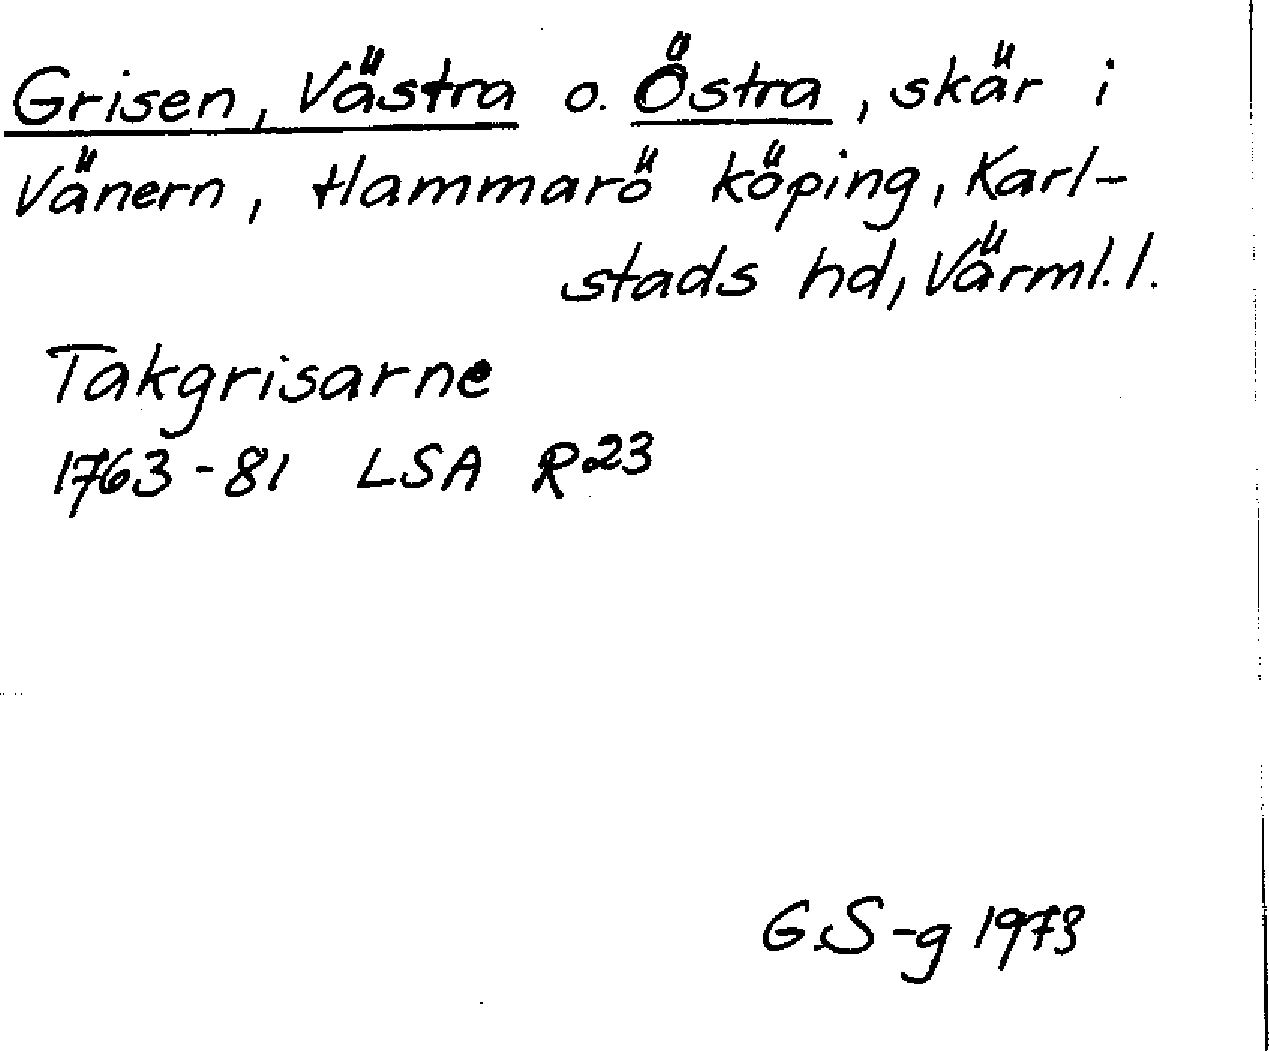 Grisen, Västra o. Östra, skär i
Vänern, Hammarö köping, Karl-
stads hd, Värml. l.
Takgrisarne
1763-81 LSA R23
G.S-g 1973